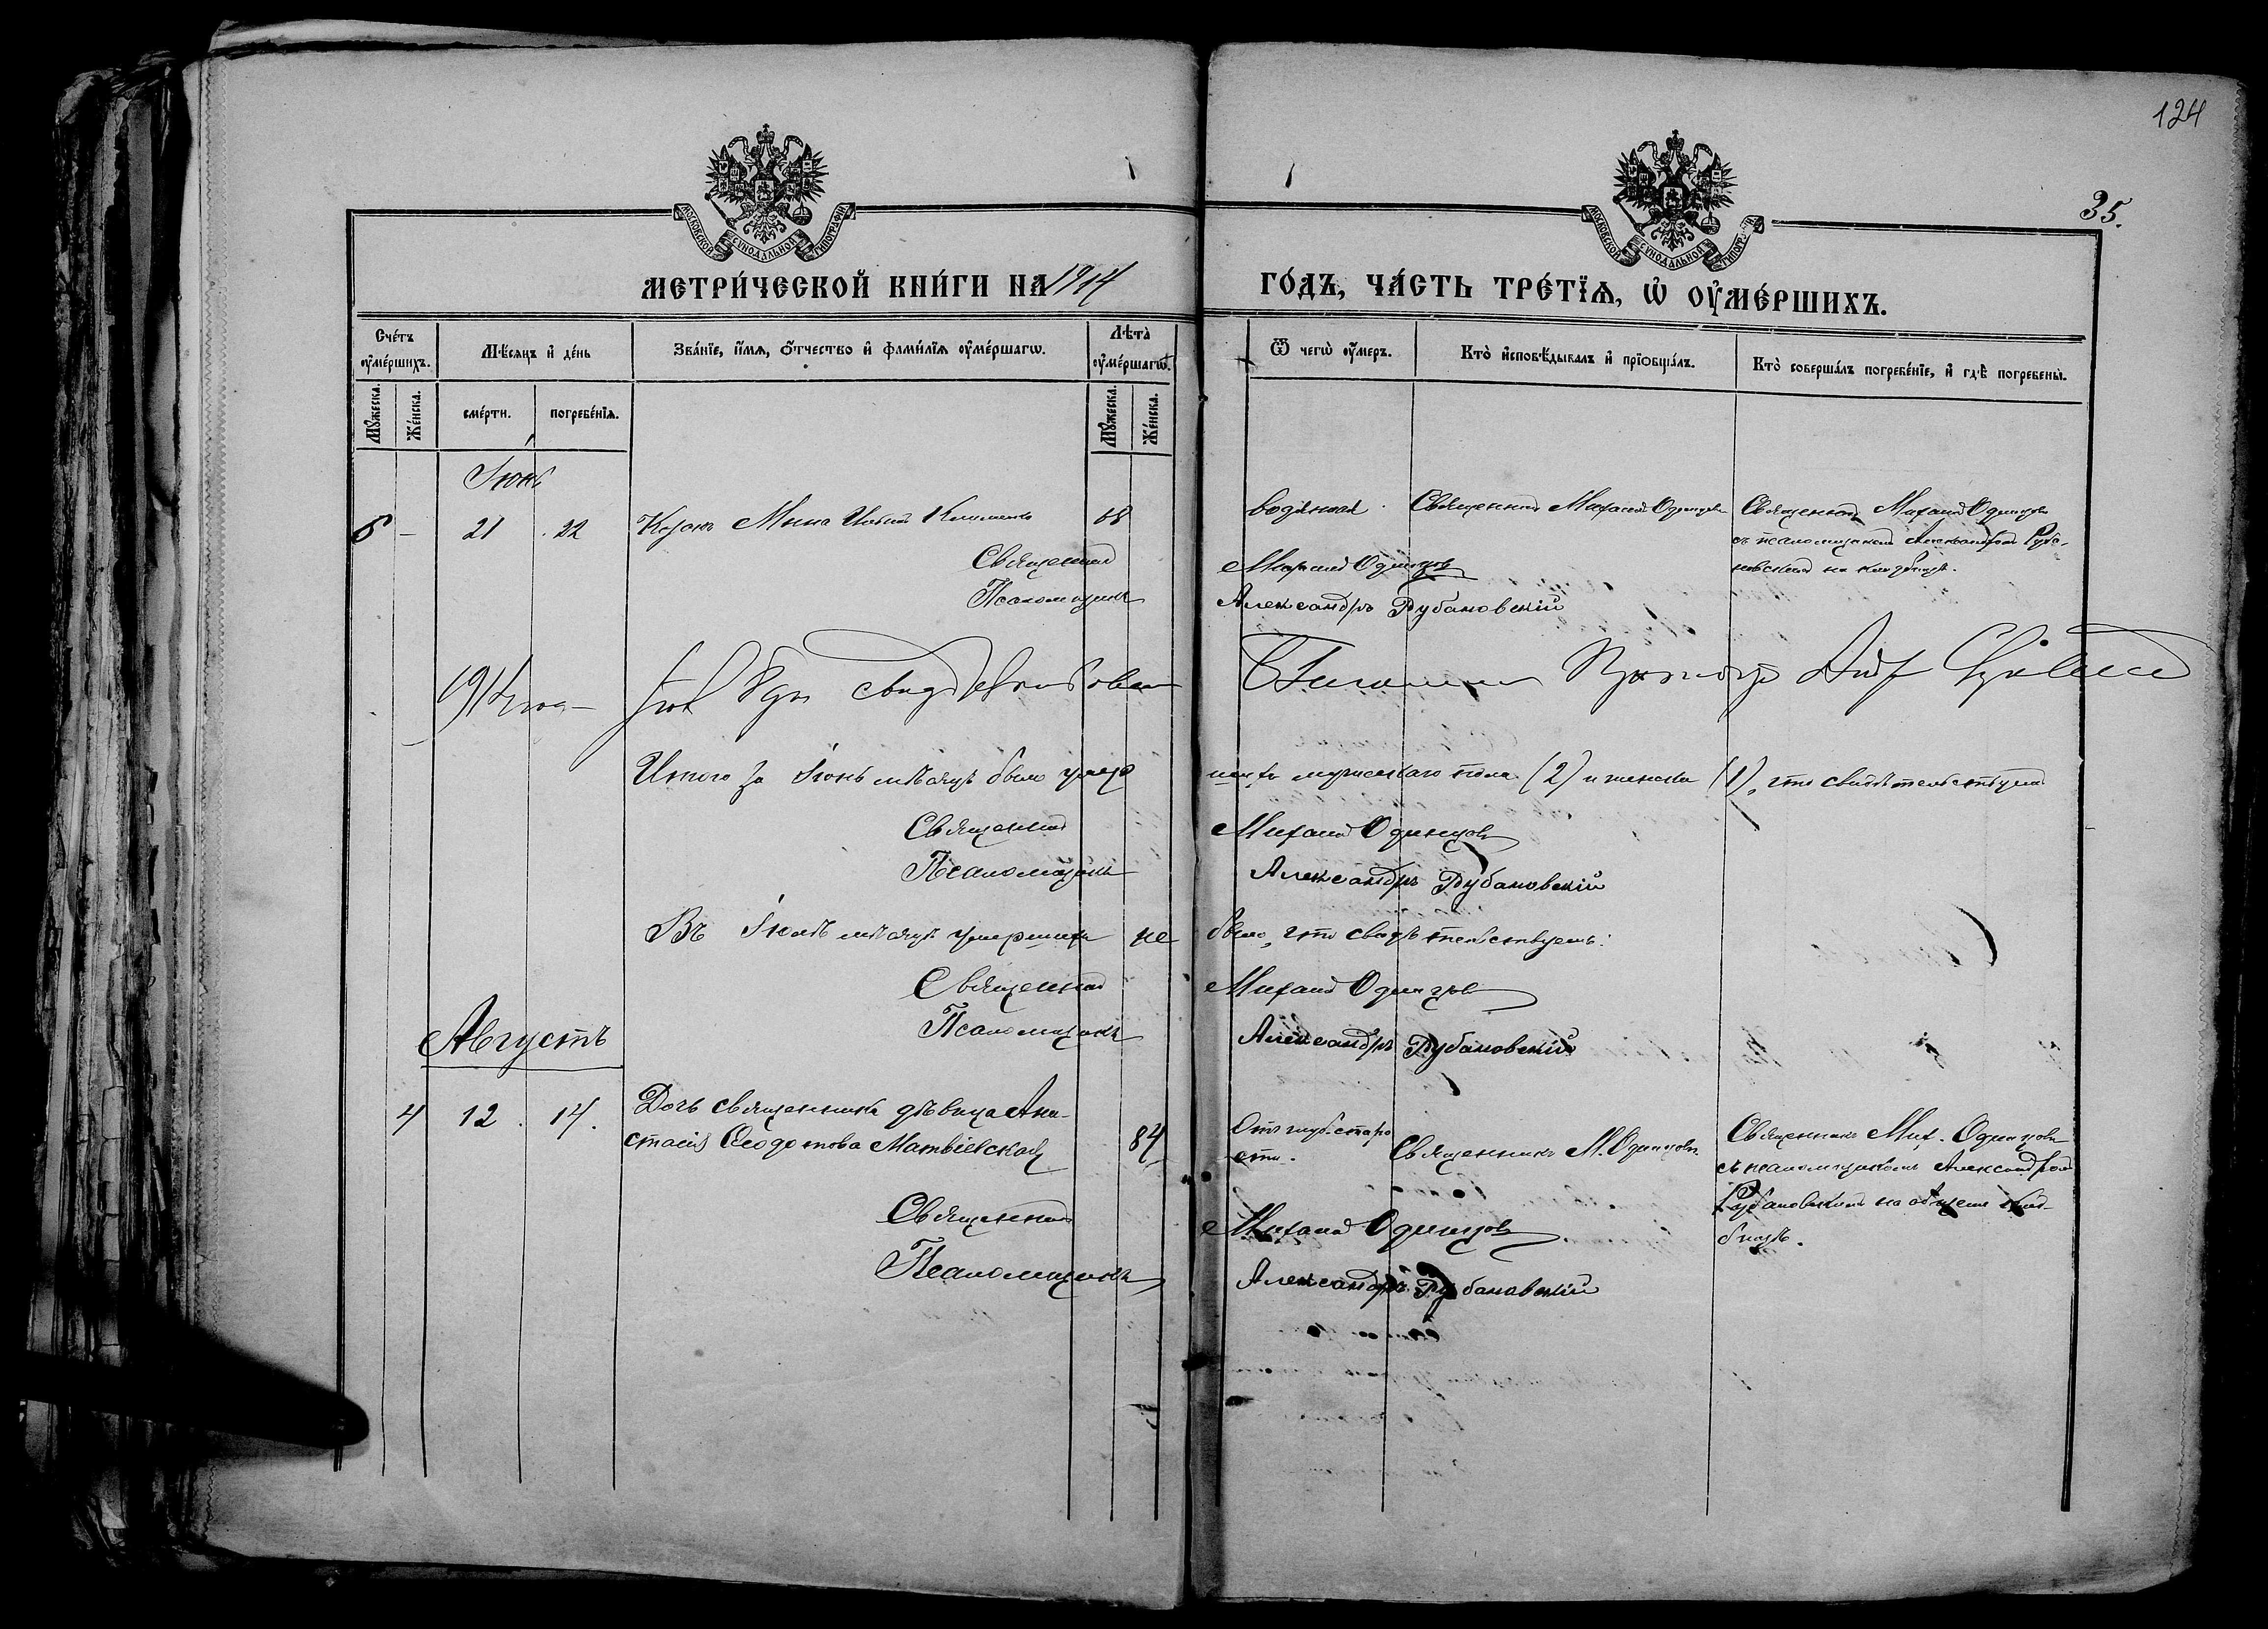 124
35.
МОСКОВСКОЙ СѴНОДАЛЬНОЙ ТИПОГРАФІИ
МОСКОВСКОЙ СѴНОДАЛЬНОЙ ТИПОГРАФІИ
МЕТРИ́ЧЕСКОЙ КНИ́ГИ НА 1914 ГО́ДЪ, ЧА́СТЬ ТРЕ́ТІѦ, Ѡ҆ ОУ҆МЕ́РШИХЪ.
Сче́тъ оу҆ме́ршихъ.
Мѣ́сяцъ и҆ де́нь
Зва́нїе, и҆́мя, ѻ҆́тчество и҆ фами́лїя оу҆ме́ршагѡ.
Лѣ́та оу҆ме́ршагѡ.
Ѿ чегѡ̀ оу҆́меръ.
Кто̀ и҆сповѣ́дывалъ и҆ прїѡбща́лъ.
Кто̀ соверша́лъ погребе́нїе, и҆ гдѣ̀ погребены̀.
Мꙋ́жеска.
Же́нска.
сме́рти.
погребе́нїя.
Мꙋ́жеска.
Же́нска.
Іюнь
21 22 Козакъ Мина
68
водянка
Священникъ Михаилъ Одинцовъ
Священникъ Михаилъ Одинцовъ
съ псаломщикомъ Александромъ Руба-
новскимъ на кладбищѣ.
Священникъ Михаилъ Одинцовъ
Псаломщикъ Александръ Рубановскій
1914 года
Итого за Іюнь мѣсяцъ было умер шихъ мужескаго пола (2) и женска (1), что свидѣтельствуемъ
Священникъ Михаилъ Одинцовъ
Псаломщикъ Александръ Рубановскій
Въ Іюлѣ мѣсяцѣ умершихъ не было, что свидѣтельствуемъ:
Священникъ Михаилъ Одинцовъ
Псаломщикъ Александръ Рубановскій
Августъ
4 12. 14. Дочь священника дѣвица Ана-
стасія Ѳеодотова Матвіевская
84
Отъ старо
сти.
Священникъ М. Одинцовъ.
Священникъ Мих. Одинцовъ
съ псаломщикомъ Александромъ
Рубановскимъ на общемъ клад-
бищѣ.
Священникъ Михаилъ Одинцовъ
Псаломщикъ Александръ Рубановскій